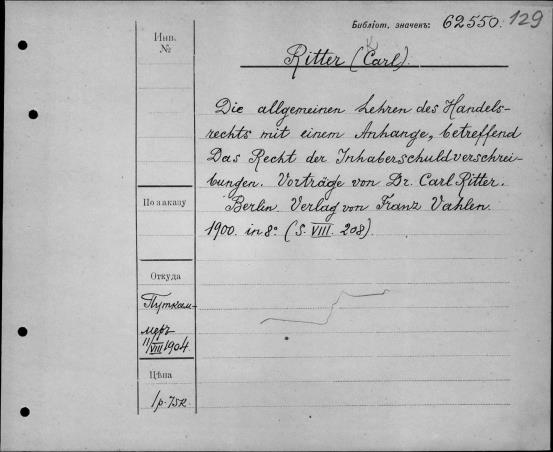 Библіот. значекъ: 62550. 129
Инв.
№
Ritter (Carl).
Die allgemeinen Lehren des Handels-
rechts mit einem Anhange, betreffend
Das Recht der Inhaberschuldverschrei-
bungen. Vorträge von Dr. Carl Ritter.
Berlin. Verlag von Franz Vahlen
1900. in 8° (S. VIII. 208).
По заказу
Откуда
Путкам-
меръ
11/VIII 1904.
Цѣна
1 р. 75 к.